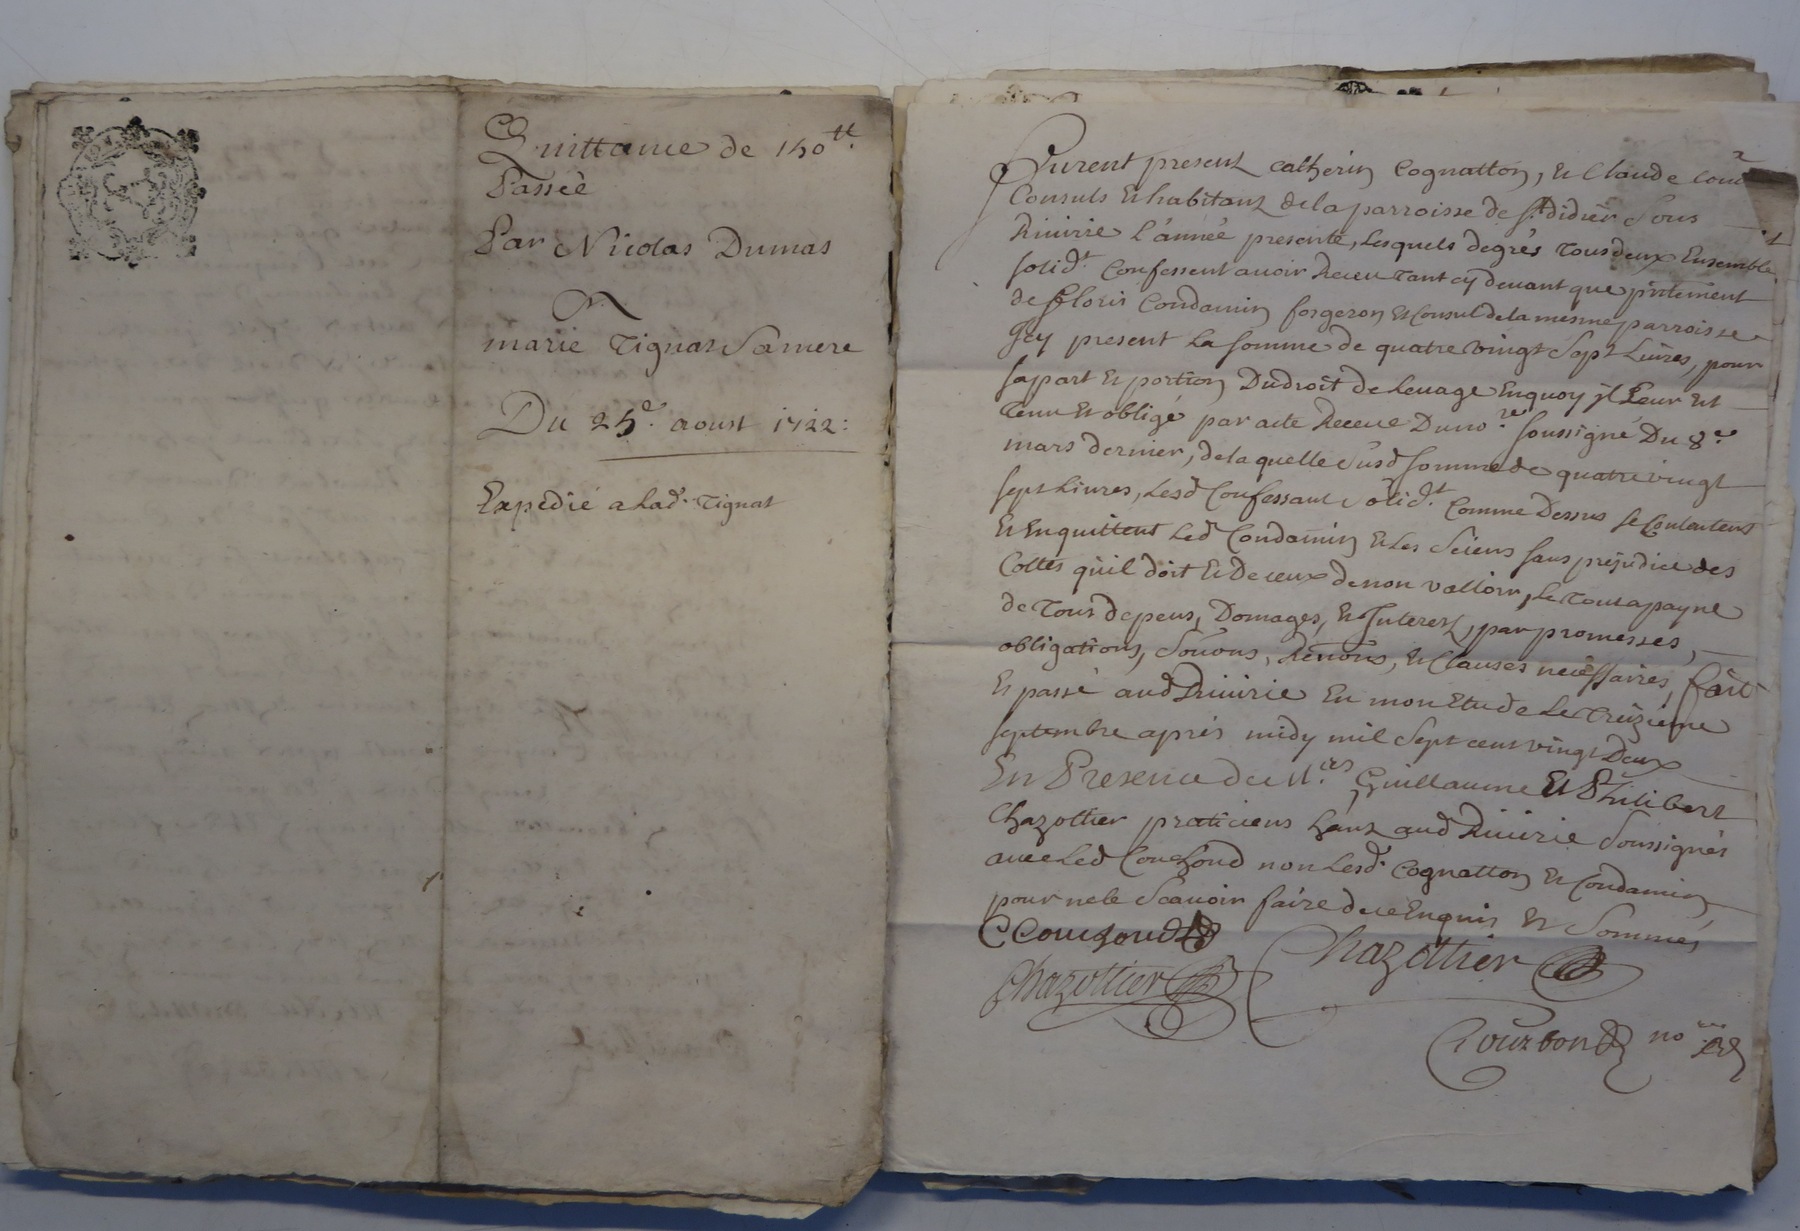 Quittance de 150ᵗᵗ.
Passée
Par Nicolas Dumas
A
marie Tignat Samere
Du 25ᵉ. aoust 1722:
Expedié a Lad. Tignat
Furent present catherin Cognatton, Et Claude
Consuls Et habitans de la parroisse de sᵗ. didier Sous
Riuirie L'année presente, Lesquels de grés Tous deux Ensemble
solidᵗ. Confessent auoir Receu Tant cy deuant que pntement
de floris Condamin forgeron Et Consul de la mesme parroisse
Jcy present La somme de quatre vingt Sept Liures, pour
sa part Et portion Du droit de Leuage Enquoy jl Leur Est
Tenu Et obligé par acte Receue Du noʳᵉ soussigné Du 8ᵉ
mars dernier, de la quelle Susd somme de quatre vingt
sept Liures, Lesd Confessant Solidᵗ. Comme Dessus se Contentent
Et Enquittent Led Condamin Et Les Sciens sans prejudice des
Cottes qu'il doit Et De ceux de non valloir, Le Tout a payne
de Tous depens, Domages, Et Interest, par promesses,
obligations, Soûons, Renons, Et Clauses necessaires, fait
Et passé aud Riuirie En mon Etude Le Treizieme
septembre aprés midy mil Sept cent vingt Deux
En Presence de Mʳᵉˢ Guillaume Et Philibert
Chazottier praticiens hans aud Riuirie Soussignés
auec Led Couzond non Lesd. Cognatton Et Condamin
pour ne le Scauoir faire de ce Enquis Et Sommés
CCouzond
Chazottier
Chazottier
Courbon noʳᵉ Rˡ